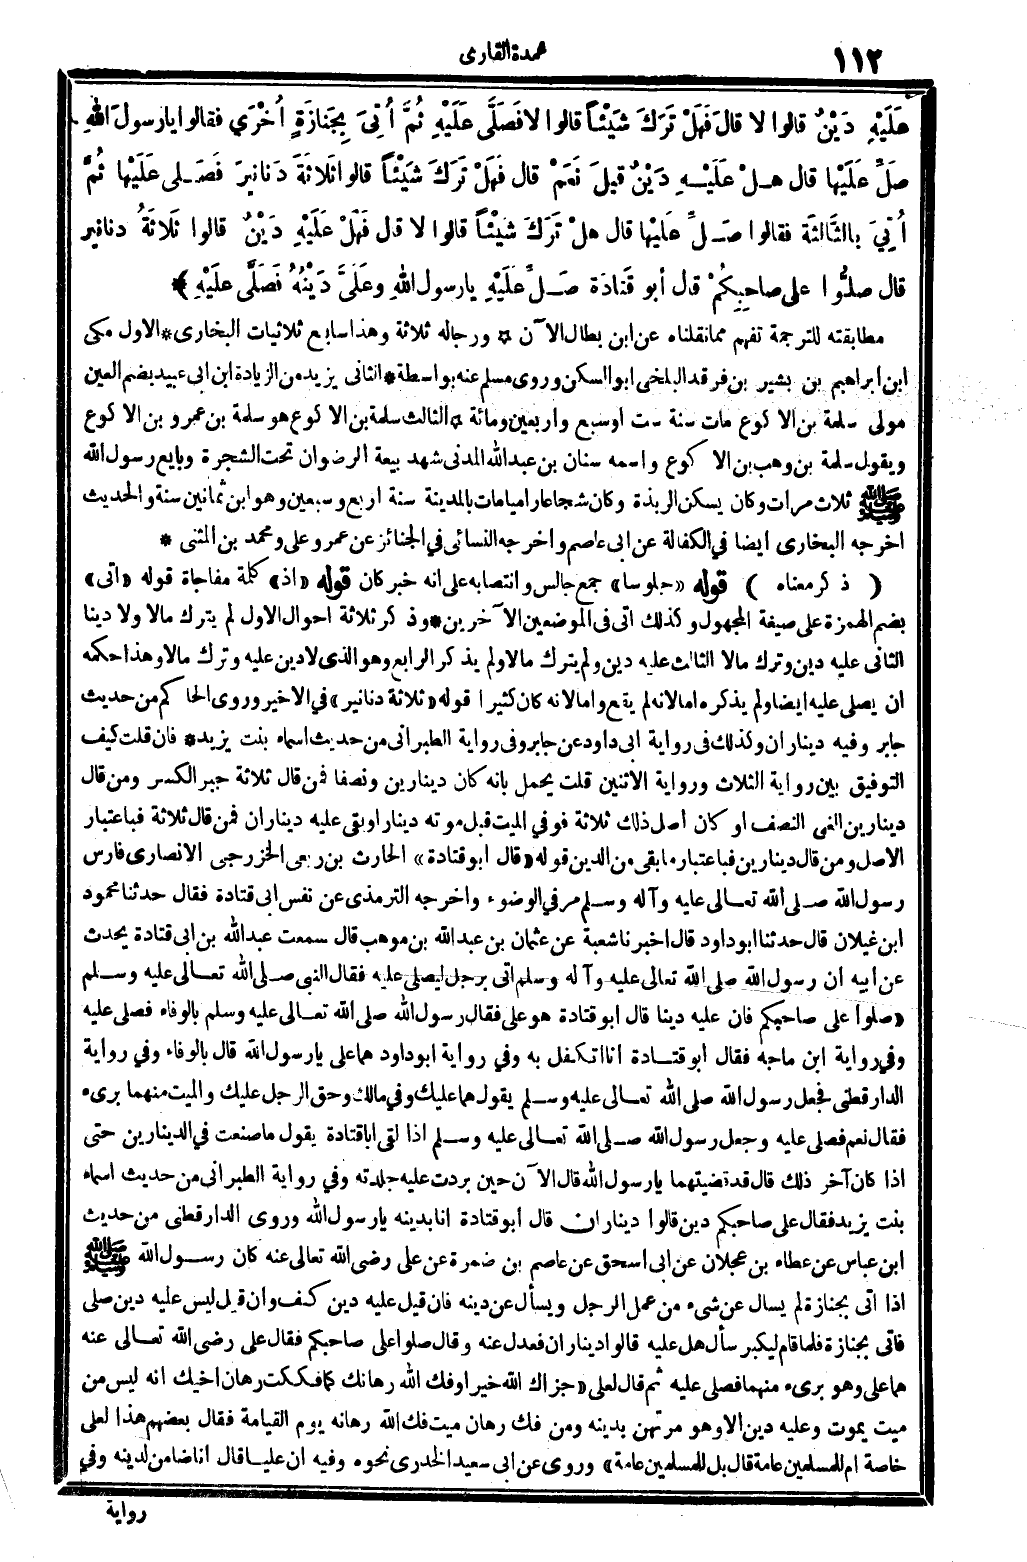 ١١٢
عمدة القارى
عَلَيْهِ دَيْنٌ قالوا لا قالَ فَهَلْ تَرَكَ شَيْئاً قالوا لا فَصَلَّى عَلَيْهِ ثُمَّ أُتِيَ بِجَنازَةٍ أُخْرَي فقالوا يا رسولَ اللهِ
صَلِّ عَلَيْها قال هـلْ عَلَيْـهِ دَيْنٌ قيلَ نَعَمْ قال فَهَلْ تَرَكَ شَيْئاً قالوا ثَلاثَةَ دَنانيرَ فَصَـلى عَلَيْها ثُمَّ
أُتِيَ باالثَّالِثَةِ فقالوا صَـلِّ عليْها قال هلْ تَرَكَ شَيْئاً قالوا لا قال فَهَلْ عَلَيْهِ دَيْنٌ قالوا ثَلاثَةُ دنانير
قال صلُّوا على صاحِبِكُمْ قال أبو قَتادَةَ صَـلِّ عَلَيْهِ يارسول اللهِ وعَلَىَّ دَيْنُهُ فَصَلَّى عَلَيْهِ ﴾*
مطابقته للترجمة تفهم مما نقلناه عن ابن بطال الآن * ورجاله ثلاثة وهذا سابع ثلاثيات البخارى * الاول مكى
ابن ابراهيم بن بشير بن فرقد البلخى ابو السكن وروى مسلم عنه بواسطة * الثانى يزيد من الزيادة ابن ابى عبيد بضم العين
مولى سلمة بن الاكوع مات سنة ست او سبع واربعين ومائة * الثالث سلمة بن الاكوع هو سلمة بن عمرو بن الاكوع
ويقول سلمة بن وهب بن الاكوع واسمه سنان بن عبدالله المدنى شهد بيعة الرضوان تحت الشجرة وبايع رسول الله
ﷺ ثلاث مرات وكان يسكن الربذة وكان شجاعا راميا مات بالمدينة سنة اربع وسبعين وهو ابن ثمانين سنة والحديث
اخرجه البخارى ايضا في الكفالة عن ابى عاصم واخرجه النسائى في الجنائز عن عمرو على ومحمد بن المثنى *
( ذكر معناه ) قوله «جلوسا» جمع جالس وانتصابه على انه خبر كان قوله «اذ» كلمة مفاجاة قوله «اتى»
بضم الهمزة على صيغة المجهول وكذلك اتى فى الموضعين الآخرين * وذكر ثلاثة احوال الاول لم يترك مالا ولا دينا
الثانى عليه دين وترك مالا الثالث عليه دين ولم يترك مالا ولم يذكر الرابع وهو الذى لادين عليه وترك مالا وهذا حكمه
ان يصلى عليه ايضا ولم يذكره اما لانه لم يقع واما لانه كان كثيرا قوله «ثلاثة دنانير» في الاخير وروى الحاكم من حديث
جابر وفيه ديناران وكذلك فى رواية ابى داود عن جابر وفى رواية الطبرانى من حديث اسماء بنت يزيد * فان قلت كيف
التوفيق بين رواية الثلاث ورواية الاثنين قلت يحمل بانه كان دينارين ونصفا فمن قال ثلاثة جبر الكسر ومن قال
دينارين الغى النصف او كان اصل ذلك ثلاثة فوفي الميت قبل موته دينارا وبقى عليه ديناران فمن قال ثلاثة فباعتبار
الاصل ومن قال دينارين فباعتبار ما بقى من الدين قوله «قال ابو قتادة» الحارث بن ربعى الخزرجى الانصارى فارس
رسول الله صـلى الله تعـالى عليه وآله وسـلم مر في الوضوء واخرجه الترمذى عن نفس ابى قتادة فقال حدثنا محمود
ابن غيلان قال حدثنا ابو داود قال اخبرنا شعبة عن عثمان بن عبدالله بن موهب قال سمعت عبدالله بن ابى قتادة يحدث
عن ابيه ان رسول الله صلى الله تعالى عليه وآله وسلم اتى برجل ليصلى عليه فقال النبى صـلى الله تعـالى عليه وسـلم
«صلوا على صاحبكم فان عليه دينا قال ابو قتادة هو على فقال رسول الله صلى الله تعـالى عليه وسلم بالوفاء فصلى عليه
وفي رواية ابن ماجه فقال ابو قتـادة انا اتكفل به وفي رواية ابو داود هما على يارسول الله قال بالوفاء وفي رواية
الدارقطنى فجعل رسول الله صلى الله تعـالى عليه وسـلم يقول هما عليك وفي مالك وحق الرجل عليك والميت منهما برىء
فقال نعم فصلى عليه وجعل رسول الله صـلى الله تعـالى عليه وسـلم اذا لقى اباقتادة يقول ما صنعت في الدينارين حتى
اذا كان آخر ذلك قال قد قضيتهما يارسول الله قال الآن حين بردت عليه جلدته وفي رواية الطبرانى من حديث اسماء
بنت يزيد فقال على صاحبكم دين قالوا ديناران قال أبو قتادة انا بدينه يارسول الله وروى الدارقطنى من حديث
ابن عباس عن عطاء بن عجلان عن ابى اسحق عن عاصم بن ضمرة عن على رضى الله تعالى عنه كان رسـول الله ﷺ
اذا اتى بجنازة لم يسال عن شىء من عمل الرجل ويسأل عن دينه فان قيل عليه دين كف وان قيل ليس عليه دين صلى
فاتى بجنازة فلما قام ليكبر سأل هل عليه قالوا ديناران فعدل عنه وقال صلوا على صاحبكم فقال على رضى الله تعـالى عنه
هما على وهو برىء منهما فصلى عليه ثم قال لعلى «جزاك الله خيرا وفك الله رهانك كما فككت رهان اخيك انه ليس من
ميت يموت وعليه دين الا وهو مرتهن بدينه ومن فك رهان ميت فك الله رهانه يوم القيامة فقال بعضهم هذا لعلى
خاصة ام للمسلمين عامة قال بل للمسلمين عامة» وروى عن ابى سعيد الخدرى نحوه وفيه ان عليا قال انا ضامن لدينه وفي
رواية